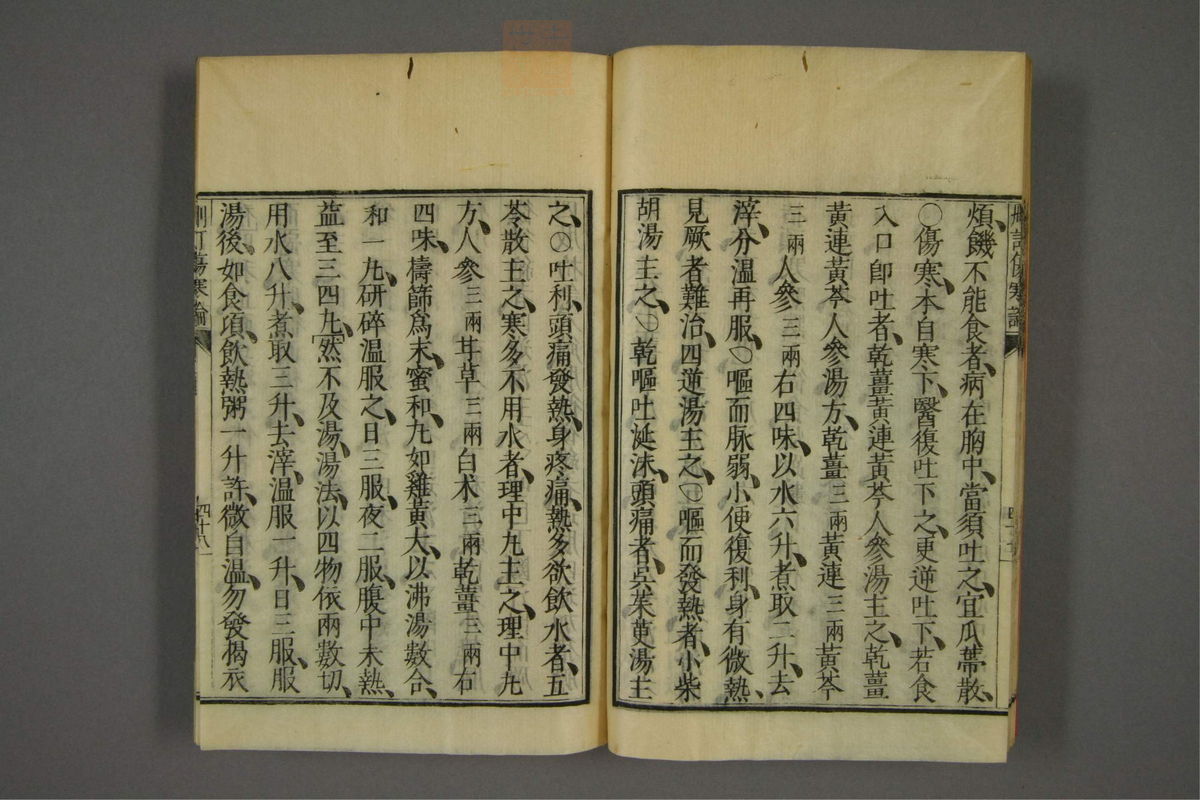 煩、饑不能食者、病在胸中、當須吐之、宜瓜蔕散、
〇傷寒本自寒下、醫復吐下之、更逆吐下、若食
入口卽吐者、乾薑黃連黃芩人參湯主之、乾薑
黃連黃芩人參湯方、乾薑三兩黃連三兩黃芩
三兩人參三兩右四味、以水六升、煮取二升、去
滓、分溫再服、〇嘔而脉弱、小便復利、身有微熱、
見厥者難治、四逆湯主之、〇嘔而發熱者、小柴
胡湯主之、〇乾嘔吐涎沫、頭痛者、吳茱萸湯主
之、〇吐利、頭痛發熱、身疼痛、熱多欲飮水者、五
苓散主之、寒多不用水者、理中九主之、理中九
方、人參三兩甘草三兩白朮三兩乾薑三兩右
四味、擣篩爲末、蜜和、九如雞黃大、以沸湯數合、
和一九、研碎溫服之、日三服、夜二服、腹中未熱、
益至三四九、然不及湯、湯法、以四物依兩數切、
用水八升、煮取三升、去滓、溫服一升、日三服、服
湯後、如食頃、飮熱粥一升許、微自溫、勿發揭衣
刪訂傷寒論
四十八